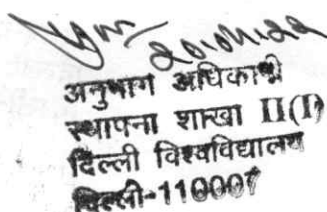 अनुभाग अधिकारी
स्थापना शाखा II(I)
दिल्ली विश्वविद्यालय
दिल्ली-110007